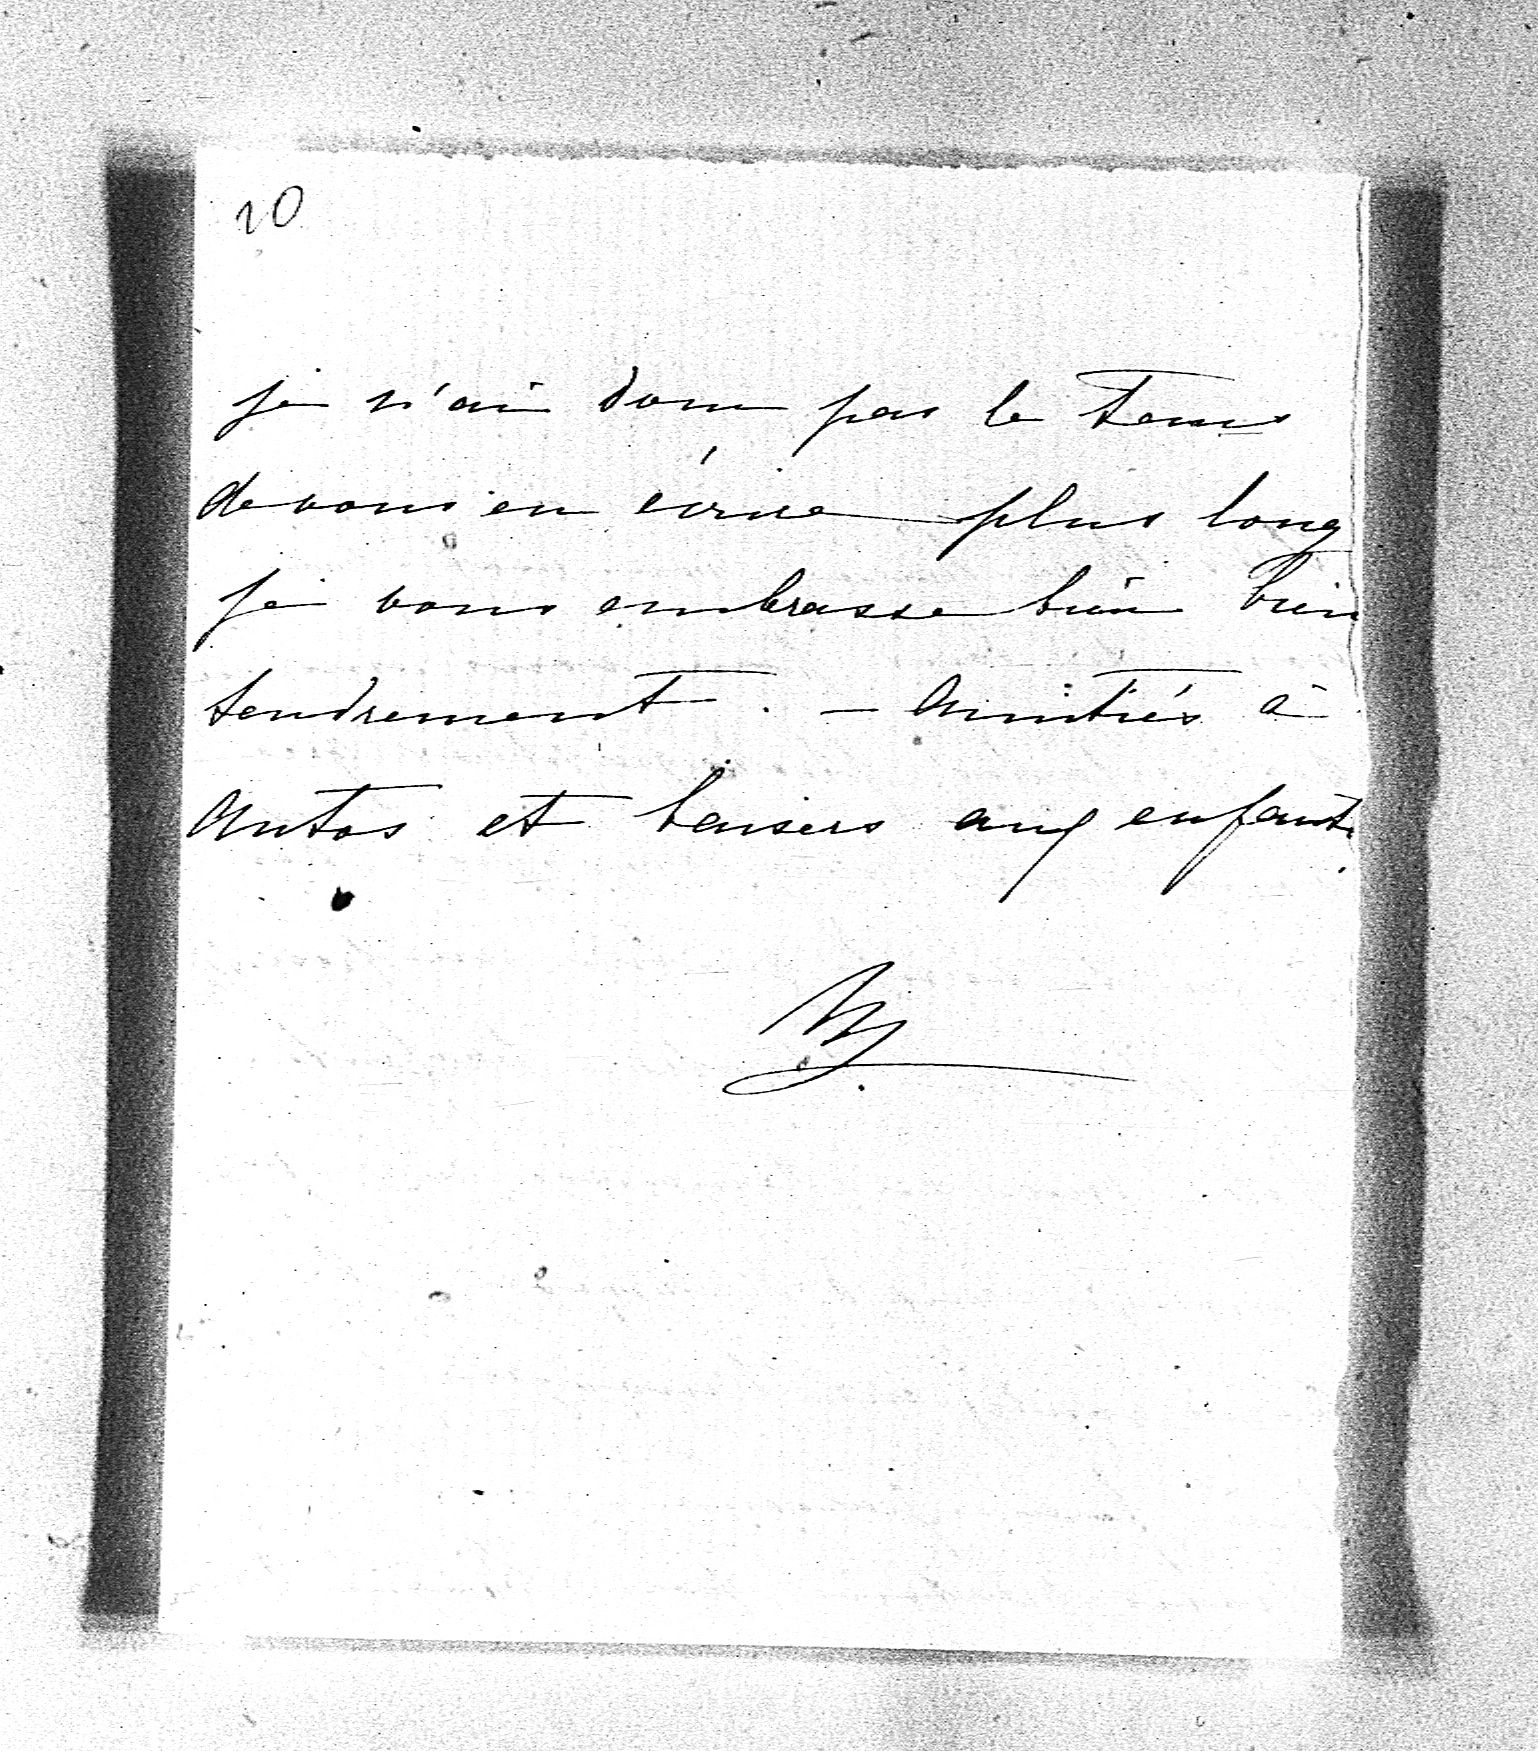 20
je n'ai donc pas le tems
de vous en écrire plus long
je vous embrasse bien bien
tendrement. — Amitiés à
Antos et baisers aux enfants.